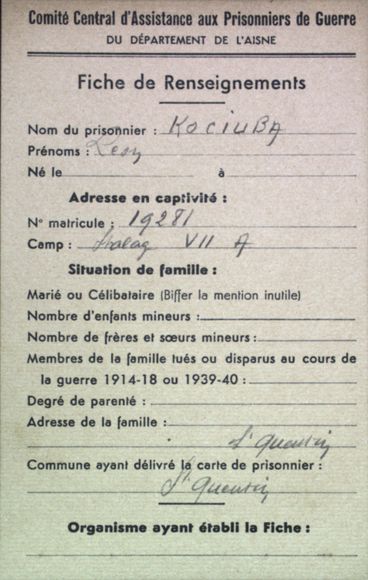 Comité Central d'Assistance aux Prisonniers de Guerre
DU DÉPARTEMENT DE L'AISNE
Fiche de Renseignements
Nom du prisonnier : KOCIUBA
Prénoms :
Né le à
Adresse en captivité :
N° matricule : 19281
Camp : Stalag VII A
Situation de famille :
Marié ou Célibataire (Biffer la mention inutile)
Nombre d'enfants mineurs :
Nombre de frères et sœurs mineurs :
Membres de la famille tués ou disparus au cours de
la guerre 1914-18 ou 1939-40 :
Degré de parenté :
Adresse de la famille :
St Quentin
Commune ayant délivré la carte de prisonnier :
St Quentin
Organisme ayant établi la Fiche :